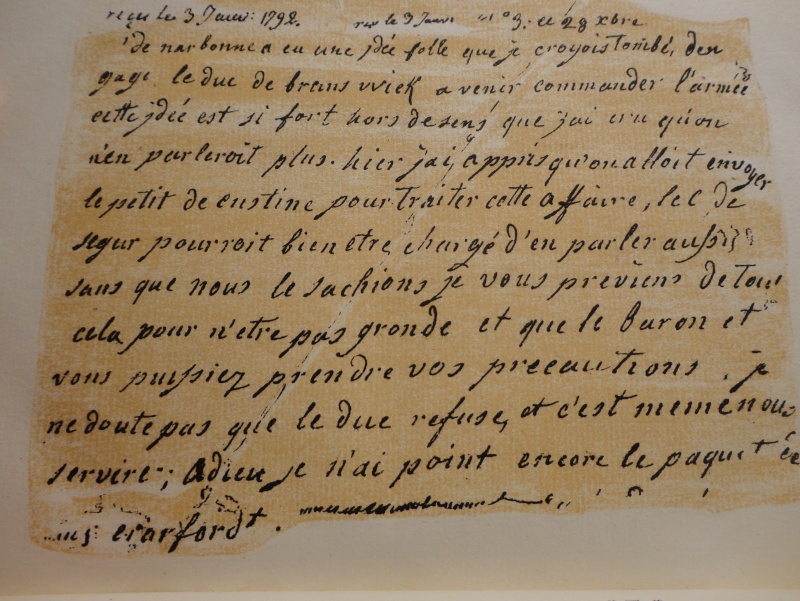 reçu les 3. Janv: 1792. rec le 3 Janv n° 3. ce 28 xbre
de narbonne a eu une jdée folle que je croyois tombé, den
gage le duc de brans vviek a venir commander l'armée
cette jdée est si fort hors de sens que j'ai cru qu'on
n'en parleroit plus. hier j'ai appris qu'on alloit envoyer
le petit de custine pour traiter cette affaire, le C de
segur pourroit bien etre chargé d'en parler aussi
sans que nous le sachions je vous previens de tout
cela pour n'etre pas gronde et que le baron et
vous puissiez prendre vos precautions. je
ne doute pas que le duc refuse, et c'est meme nous
servire; adieu je n'ai point encore le paquet de
crarfordt.